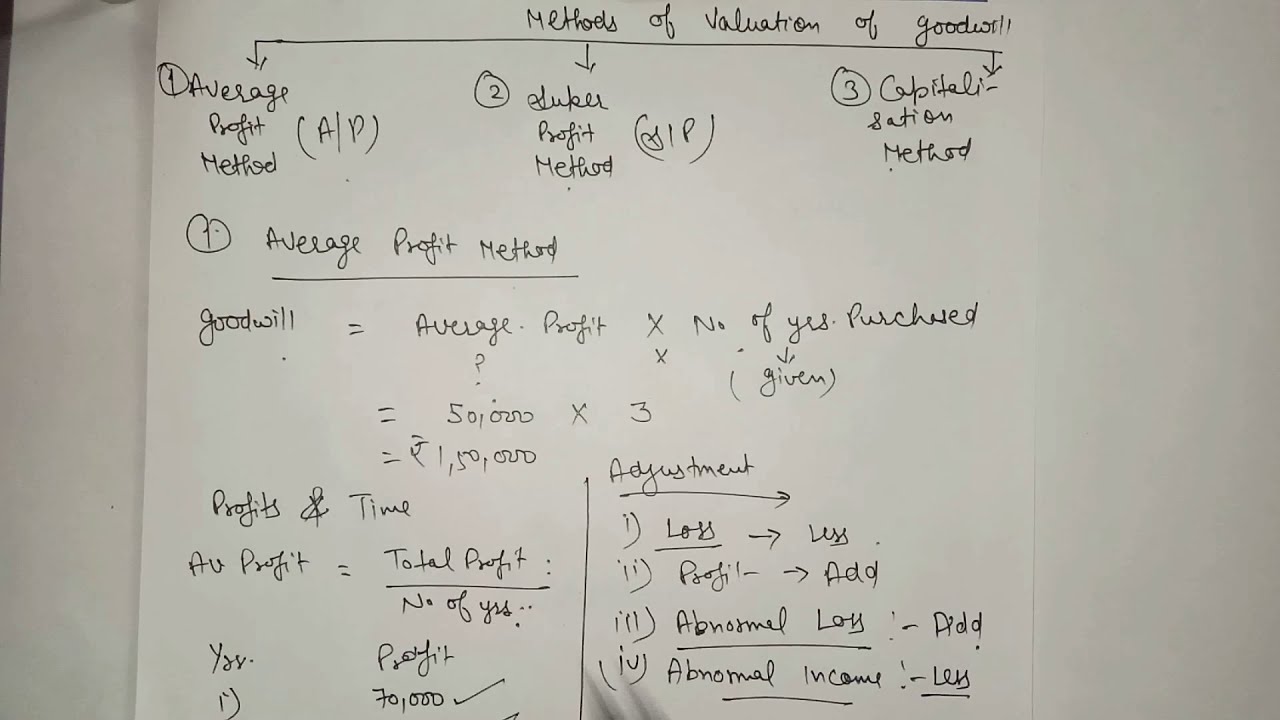 Methods of Valuation of goodwill
① Average Profit Method (A/P)
② Super Profit Method (S/P)
③ Capitali-
sation
Method
①. Average Profit Method
goodwill = Average. Profit X No. of yrs. Purchased
? x (given)
= 50,000 X 3
= ₹ 1,50,000
Profits & Time
Av Profit = Total Profit :
No. of yrs..
Yrs. Profit
i) 70,000 ✓
Adjustment
i) Loss → Less
ii) Profit- → Add
iii) Abnormal Loss :- Add
(iv) Abnormal Income :- Less